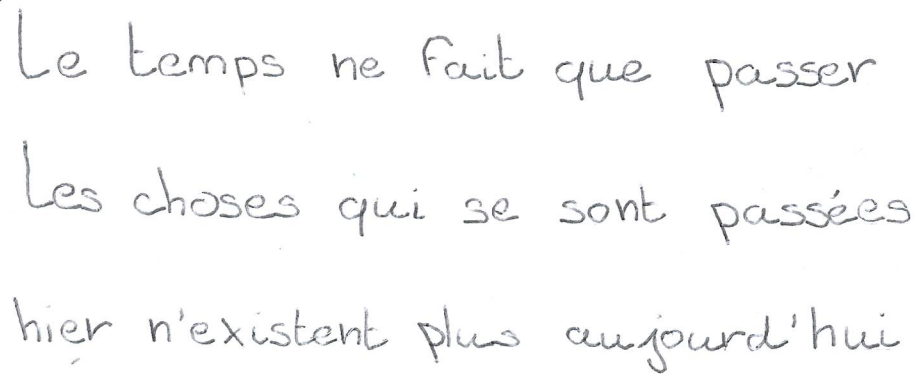 Le temps ne fait que passer
Les choses qui se sont passées
hier n'existent plus aujourd'hui